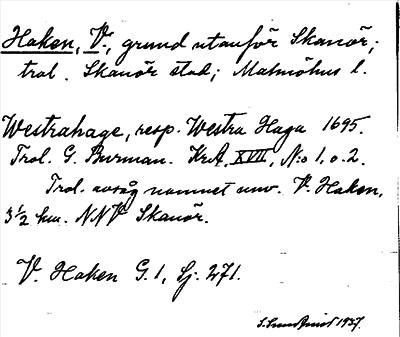 Haken, V., grund utanför Skanör;
trol. Skanör stad; Malmöhus l.
Westrahage, resp. Westra Haga 1695.
Trol. G. Burman. KrA. XVII, N:o 1, o. 2.
Trol. avsåg namnet nuv. V. Haken,
3½ km. NNV Skanör.
V. Haken G. 1, Sj. 271.
1937.